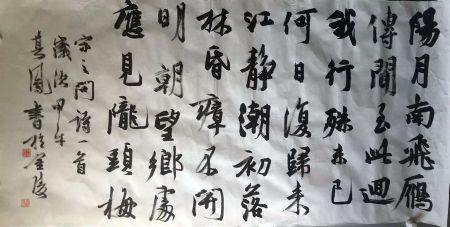 陽月南飛鴈
傳聞至此迴
我行殊未已
何日復歸來
江靜潮初落
林昏瘴不開
明朝望鄉處
應見隴頭梅
宋之問詩一首
歲次甲午
書於金陵